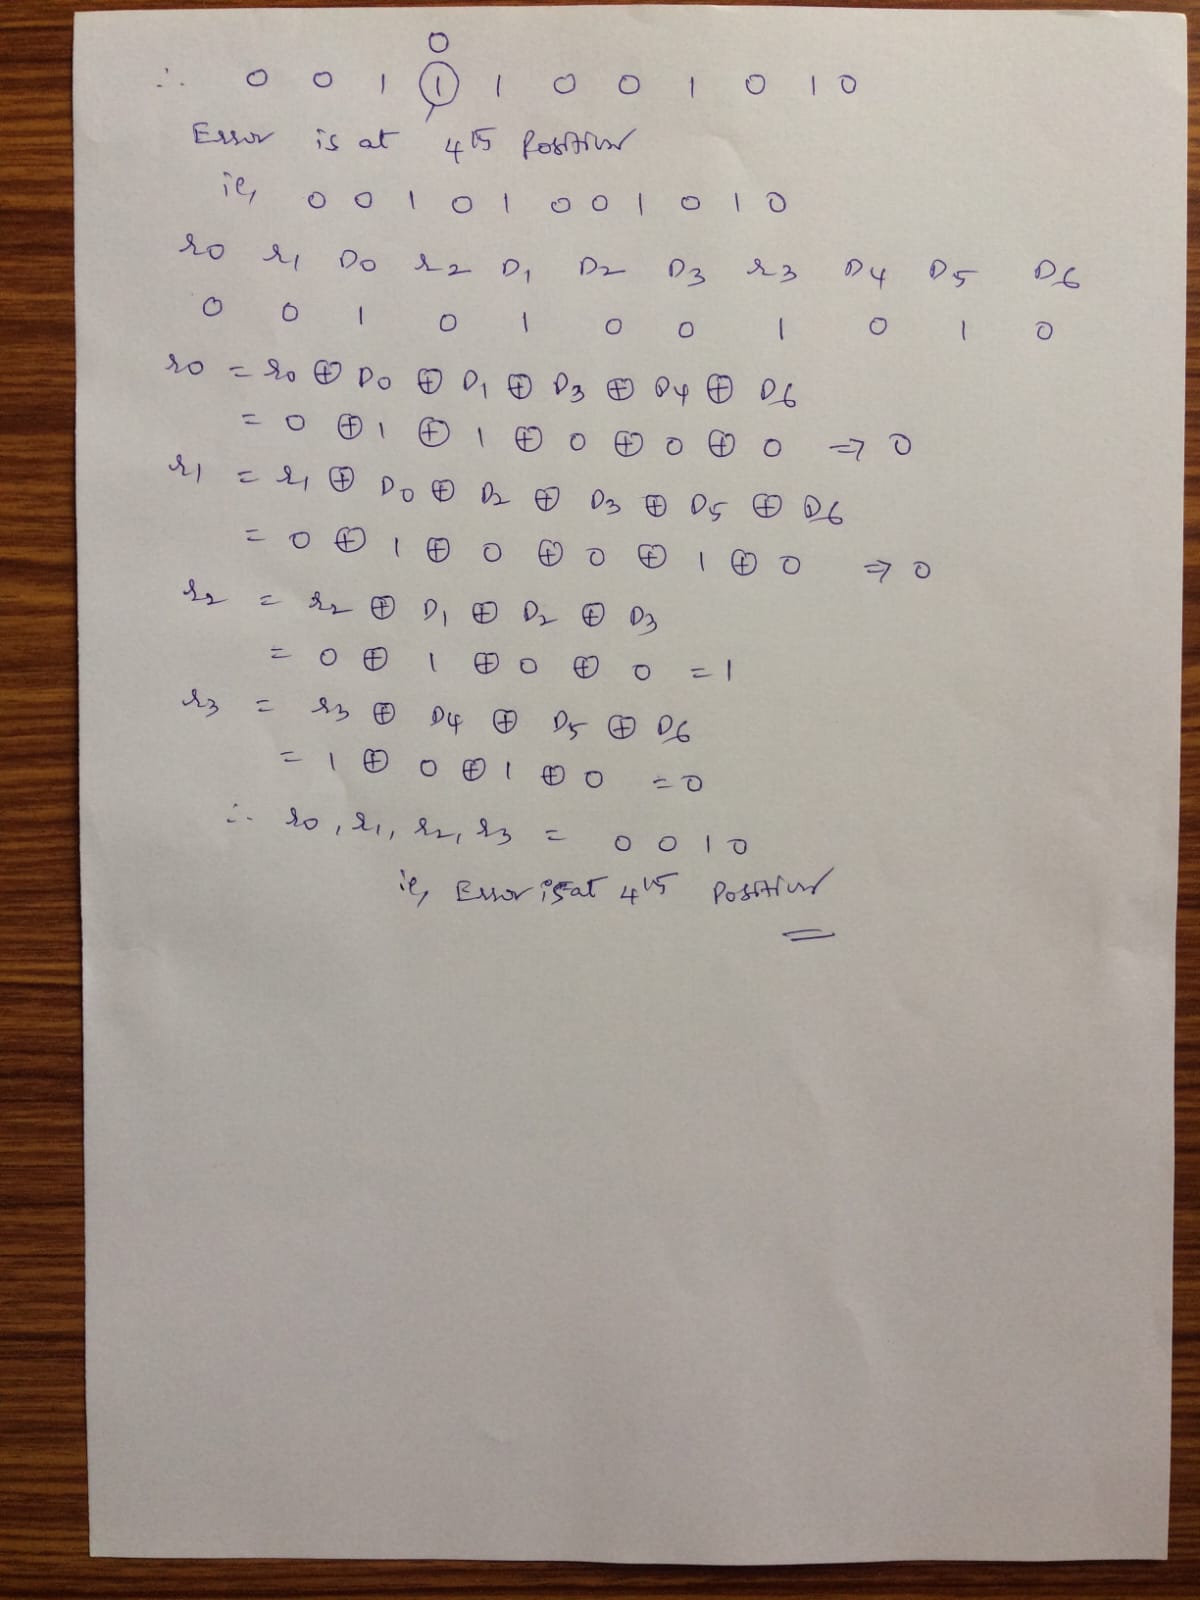 0
∴ 0 0 1 1 1 0 0 1 0 1 0
Error is at 4th Position
ie, 0 0 1 0 1 0 0 1 0 1 0
r0 r1 D0 r2 D1 D2 D3 r3 D4 D5 D6
0 0 1 0 1 0 0 1 0 1 0
r0 = r0 ⊕ D0 ⊕ D1 ⊕ D3 ⊕ D4 ⊕ D6
= 0 ⊕ 1 ⊕ 1 ⊕ 0 ⊕ 0 ⊕ 0 ⇒ 0
r1 = r1 ⊕ D0 ⊕ D2 ⊕ D3 ⊕ D5 ⊕ D6
= 0 ⊕ 1 ⊕ 0 ⊕ 0 ⊕ 1 ⊕ 0 ⇒ 0
r2 = r2 ⊕ D1 ⊕ D2 ⊕ D3
= 0 ⊕ 1 ⊕ 0 ⊕ 0 = 1
r3 = r3 ⊕ D4 ⊕ D5 ⊕ D6
= 1 ⊕ 0 ⊕ 1 ⊕ 0 = 0
∴ r0, r1, r2, r3 = 0 0 1 0
ie, Error is at 4th Position